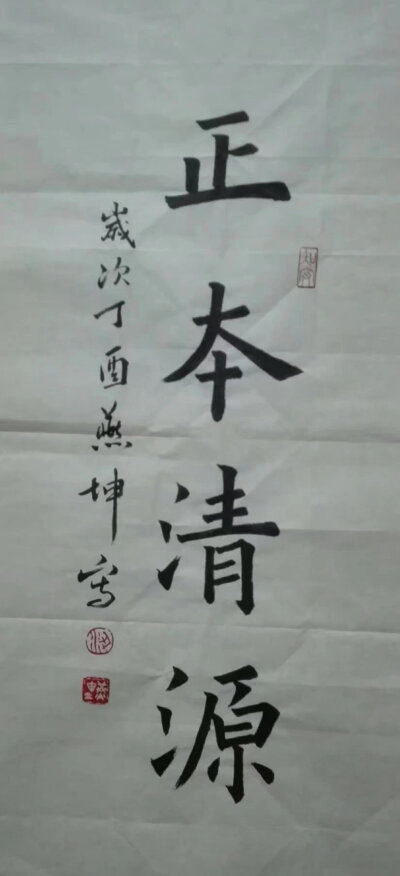 正本清源
歲次丁酉燕坤写